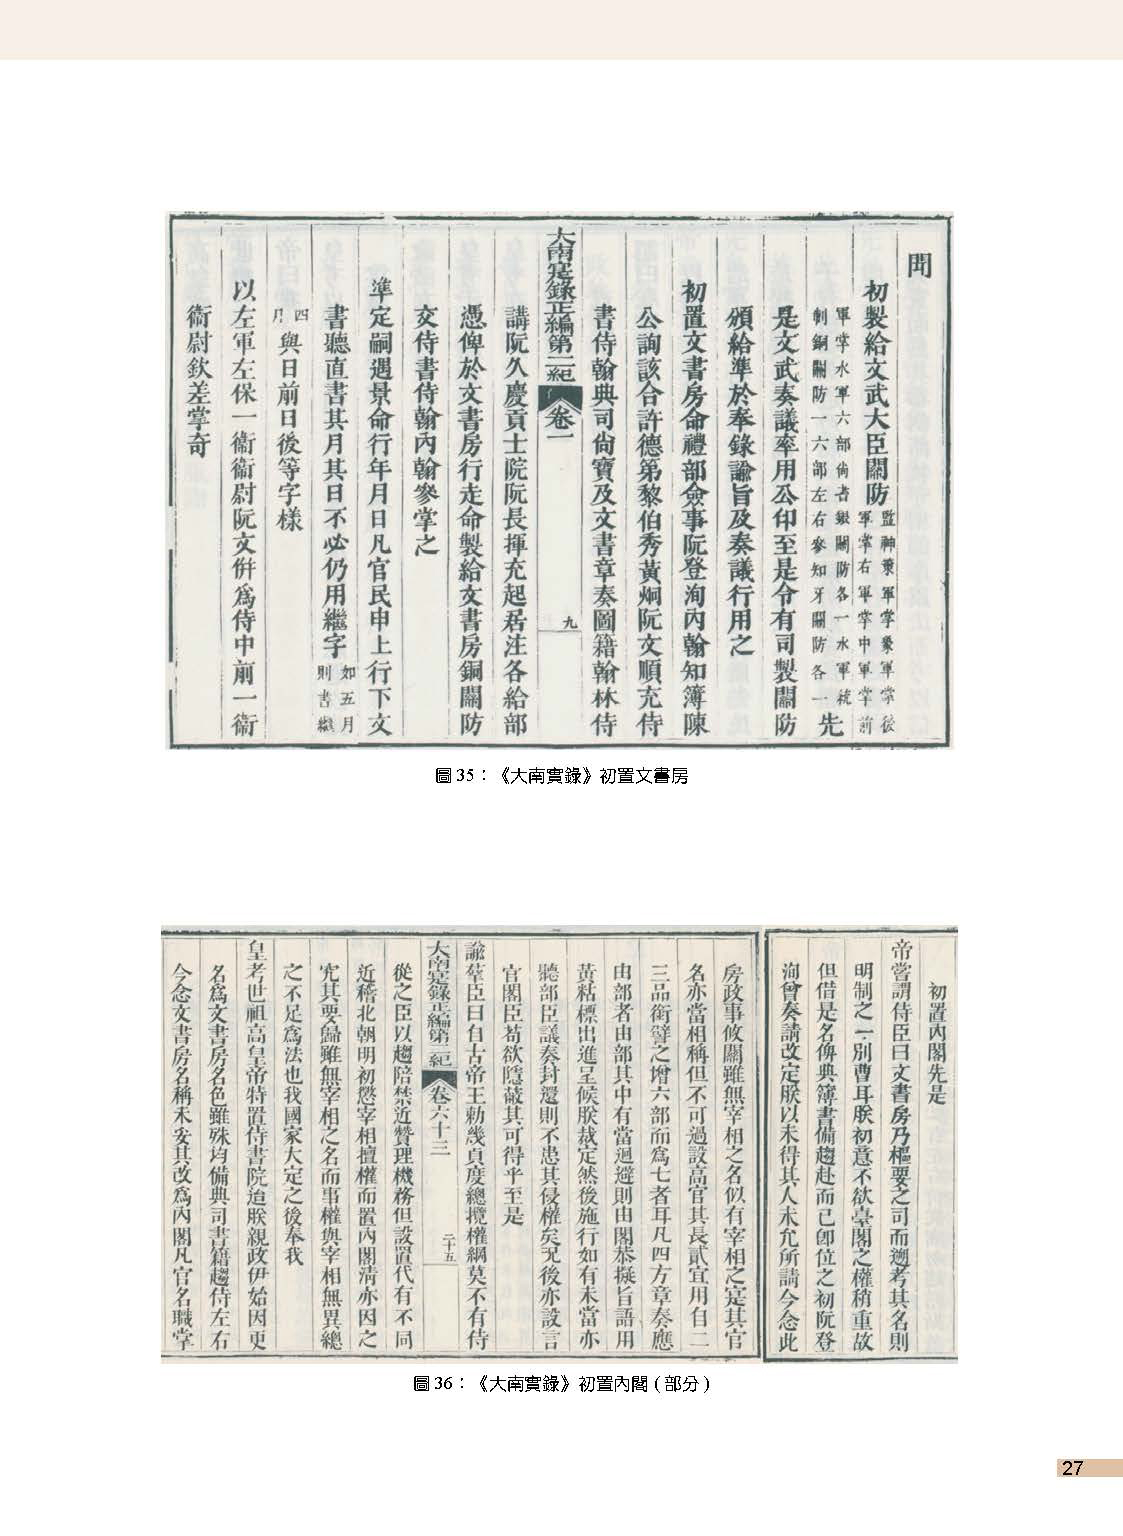 聞
初製給文武大臣關防監神策軍掌象軍掌後軍掌右軍掌中軍掌前
軍掌水軍六部尙書銀關防各一水軍統制銅關防一六部左右參知牙關防各一先
是文武奏議率用公印至是令有司製關防
頒給準於奉錄諭旨及奏議行用之
初置文書房命禮部僉事阮登洵內翰知簿陳
公詢該合許德第黎伯秀黃炯阮文順充侍
書侍翰典司尙寶及文書章奏圖籍翰林侍
大南寔錄正編第二紀 卷一 九
講阮久慶貢士院阮長揮充起居注各給部
憑俾於文書房行走命製給文書房銅關防
交侍書侍翰內翰參掌之
準定嗣遇景命行年月日凡官民申上行下文
書聽直書其月其日不必仍用繼字如五月則書繼
四月與日前日後等字樣
以左軍左保一衞衞尉阮文倂爲侍中前一衞
衞尉欽差掌奇
圖 35：《大南實錄》初置文書房
初置內閣先是
帝嘗謂侍臣曰文書房乃樞要之司而遡考其名則
明制之一別曹耳朕初意不欲臺閣之權稍重故
但借是名俾典簿書備趨赴而已卽位之初阮登
洵曾奏請改定朕以未得其人未允所請今念此
房政事攸關雖無宰相之名似有宰相之寔其官
名亦當相稱但不可過設高官其長貳宜用自二
三品銜譬之增六部而爲七者耳凡四方章奏應
由部者由部其中有當迴避則由閣恭擬旨語用
黃粘標出進呈候朕裁定然後施行如有未當亦
聽部臣議奏封還則不患其侵權矣况後亦設言
官閣臣苟欲隱蔽其可得乎至是
諭羣臣曰自古帝王勅幾貞度總攬權綱莫不有侍
大南寔錄正編第二紀 卷六十三 二十五
從之臣以趨陪禁近贊理機務但設置代有不同
近稽北朝明初懲宰相擅權而置內閣淸亦因之
究其要歸雖無宰相之名而事權與宰相無異總
之不足爲法也我國家大定之後奉我
皇考世祖高皇帝特置侍書院迨朕親政伊始因更
名爲文書房名色雖殊均備典司書籍趨侍左右
今念文書房名稱未妥其改爲內閣凡官名職掌
圖 36：《大南實錄》初置內閣 ( 部分 )
27